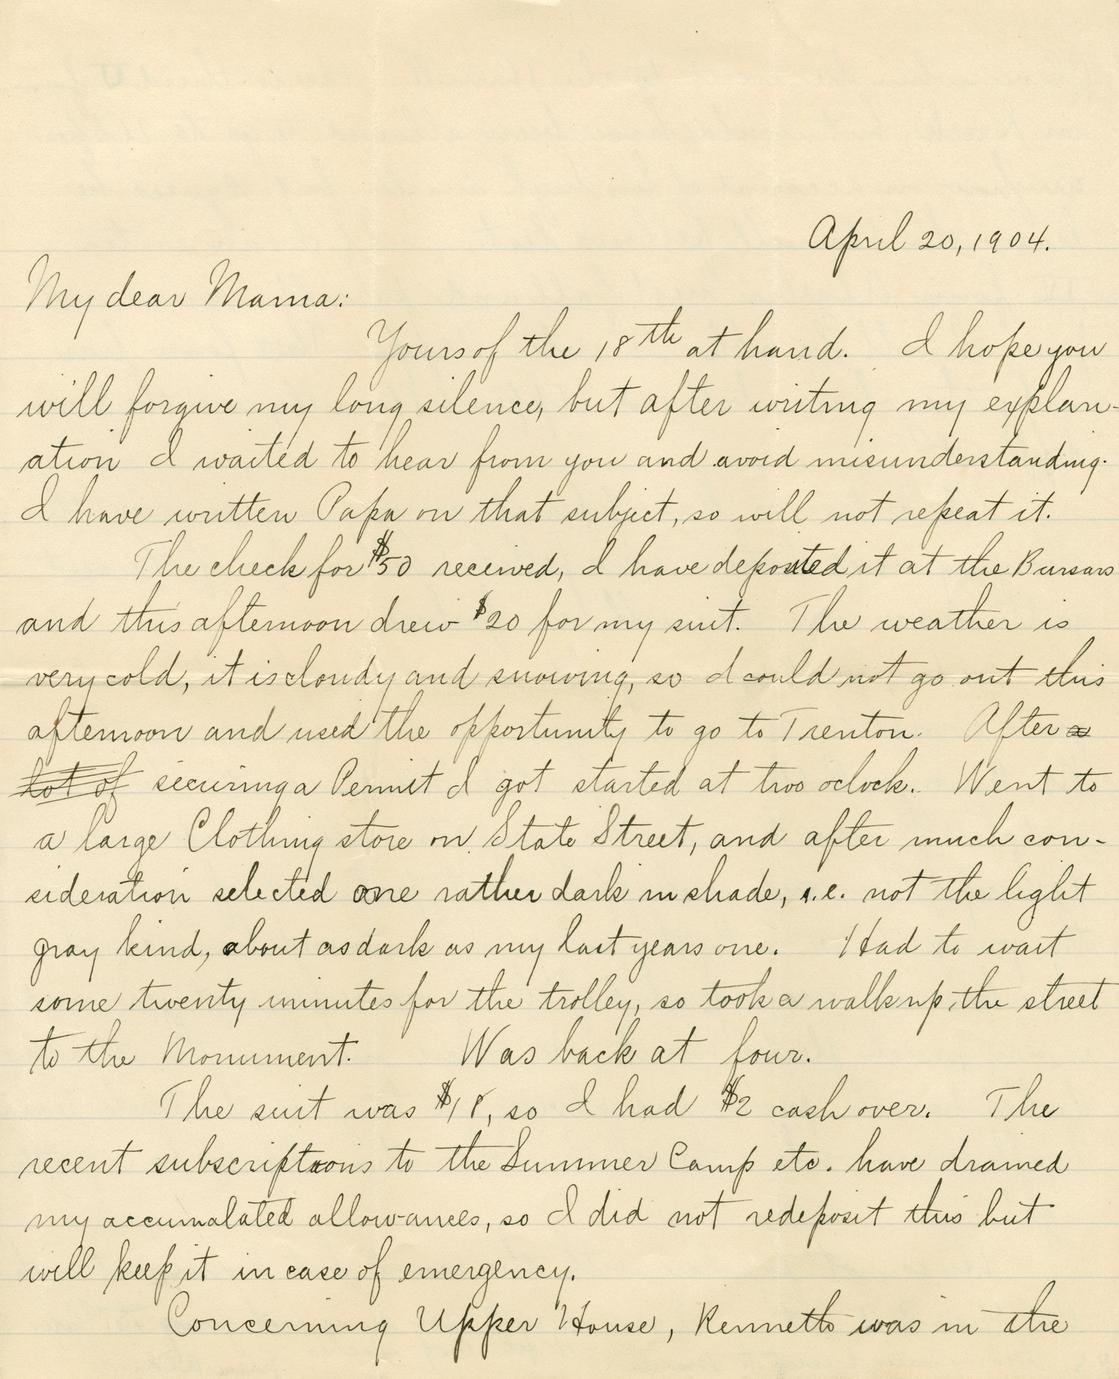 April 20, 1904.
My dear Mama:
Yours of the 18th at hand. I hope you
will forgive my long silence, but after writing my explan-
ation I waited to hear from you and avoid misunderstanding.
I have written Papa on that subject, so will not repeat it.
The check for $50 received, I have deposited it at the Bursars
and this afternoon drew $20 for my suit. The weather is
very cold, it is cloudy and snowing, so I could not go out this
afternoon and used the opportunity to go to Trenton. After a
lot of securing a Permit I got started at two oclock. Went to
a large Clothing store on State Street, and after much con-
sideration selected one rather dark in shade, i.e. not the light
gray kind, about as dark as my last years one. Had to wait
some twenty minutes for the trolley, so took a walk up the street
to the Monument. Was back at four.
The suit was $18, so I had $2 cash over. The
recent subscriptions to the Summer Camp etc. have drained
my accumalated allowances, so I did not redeposit this but
will keep it in case of emergency.
Concerning Upper House, Kenneth was in the